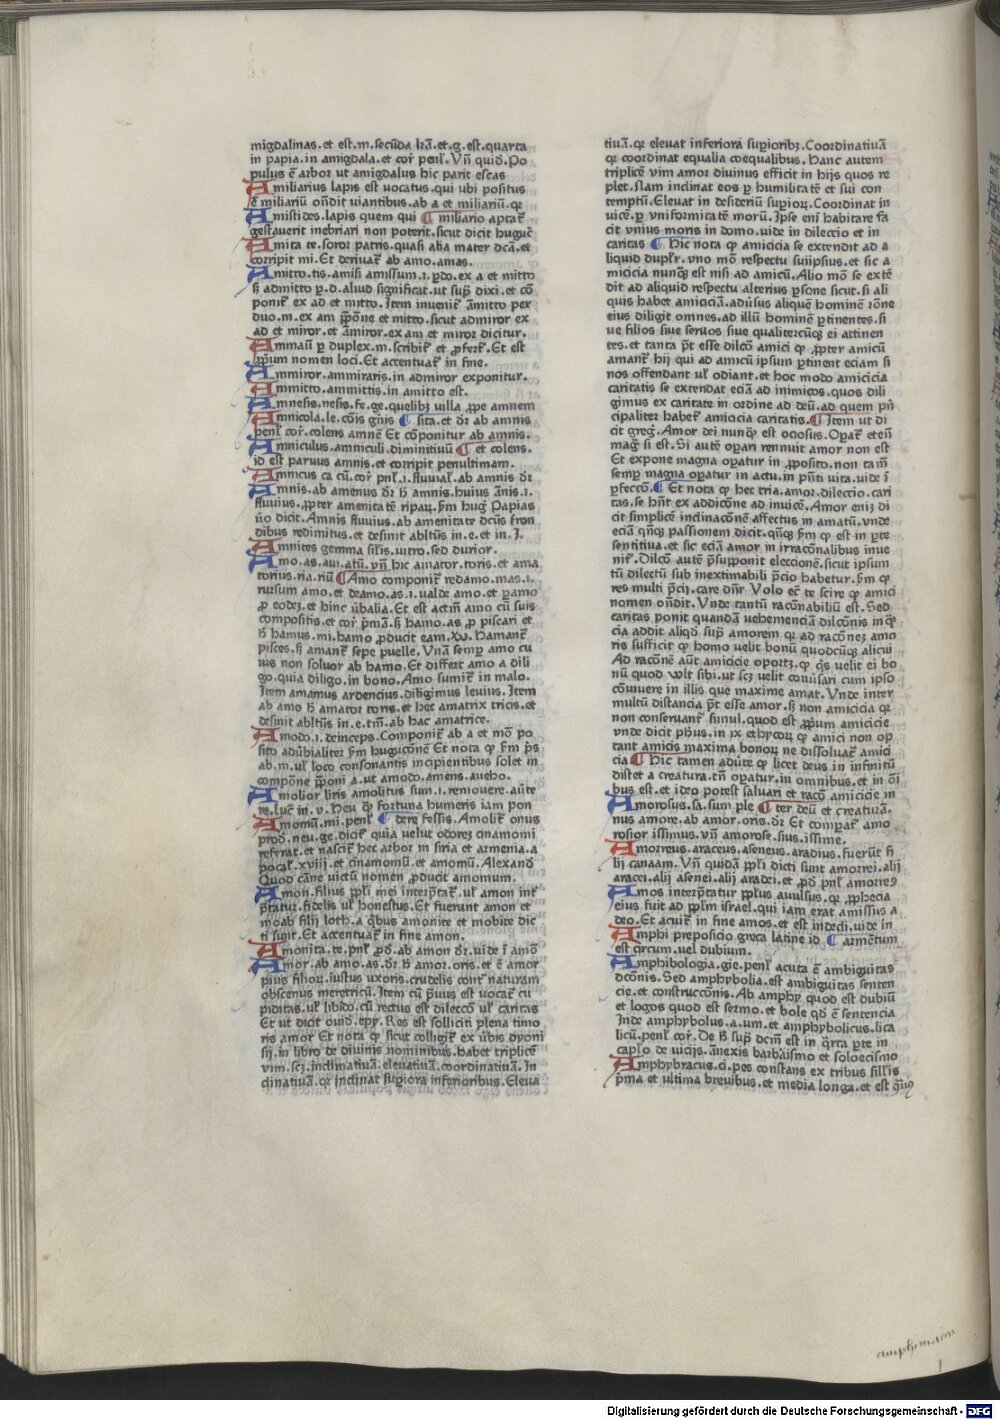 migdalinas.et est.m.secūda lr̄a.et.g.est.quarta
in papia.in amigdala.et cor̄ penl̄. Vn̄ quid. Po
pulus ē arbor ut amigdalus hic parit escas
Amiliarius lapis est vocatus.qui ubi positus
ē miliariū on̄dit uiantibus.ab a et miliariū.qr
Amistides.lapis quem qui ¶ miliario aptat᷑
gestauerit inebriari non poterit.sicut dicit huguc̄
Amita te.soror patris.quasi alia mater dc̄a.et
corripit mi.Et deriuat᷑ ab amo.amas.
Amitto.tis.amisi amissum.i.ꝑdo.ex a et mitto
ꝫ admitto ꝑ.d.aliud significat.ut sup̄ dixi.et cō
ponit᷑ ex ad et mitto.Item inuenit᷑ āmitto per
duo.m.ex am p̄pōne et mitto.sicut admiror ex
ad et miror.et āmiror.ex am et miror dicitur.
Ammaū ꝑ duplex.m.scribit᷑ et ꝓfert᷑.Et est
ꝓpriū nomen loci.Et accentuat᷑ in fine.
Ammiror.ammiraris.in admiror exponitur.
Ammitto.ammittis.in amitto est.
Amnesis.nesis.fe.ge.quelibꝫ uilla ꝓpe amnem
Amnicola.le.cōis gn̄is ¶ sita.et dr̄ ab amnis
penl̄ cor̄.colens amnē Et cōponitur ab amnis.
Amniculus.amniculi.diminitiuū ¶ et colens.
id est paruus amnis.et corripit penultimam.
Amnicus ca cū.cor̄ pnl̄.i.fluuial᷑.ab amnis dr̄
Amnis.ab amenus dr̄ h̄ amnis.huius ānis.i.
fluuius.ꝓpter amenitatē ripaꝝ.ẜm hug᷑ Papias
u̇o dicit.Amnis fluuius.ab amenitate dc̄us fron
dibus redimitus.et desinit abltūs in.e.et in.i.
Amnites gemma sil̄is.uitro.sed durior.
Amo.as.aui.atū.vn̄ hic amator.toris.et ama
torius.ria.riū ¶ Amo componit᷑ redamo.mas.i.
rursum amo.et deamo.as.i.ualde amo.et ꝑamo
ꝓ eodeꝫ.et hinc ūbalia.Et est actīm amo cū suis
compositis.et cor̄ p̄mā.ꝫ hamo.as ꝓ piscari et
h̄ hamus.mi.hamo ꝓducit eam.Xv̄. Hamant᷑
pisces.ꝫ amant᷑ sepe puelle. Vnā semꝑ amo cu
ius non soluor ab hamo. Et differt amo a dili
go.quia diligo.in bono.Amo sumit᷑ in malo.
Item amamus ardencius.diligimus leuius. Item
ab amo h̄ amator toris.et hec amatrix tricis.et
desinit abltūs in.e.tm̄.ab hac amatrice.
Amodo.i.deinceps. Componit᷑ ab a et mō po
sito adūbialiter ẜm hugucōnē Et nota ꝙ ẜm p̄s
ab.m.ul᷑ loco consonantis incipientibus solet in
compōne p̄poni a.ut amodo.amens.aueho.
Amolior liris amolitus sum.i.remouere.aūte
re.luc᷑ in.v. Heu ꝙ fortuna humeris iam pon
Amomū.mi.penl̄ ¶ dere fessis.Amolit᷑ onus
prod̄.neu.ge.dicit᷑ quia velut odoreꝫ cinamomi
referat.et nascit᷑ hec arbor in siria et armenia.a
pocal᷑.xviij.et cinamomū.et amomū. Alexand᷑
Quod cāne victū nomen ꝓducit amomum.
Amon.filius ppl̄i mei interp̄tat᷑.ul᷑ amon int᷑
p̄tatur.fidelis ul᷑ honestus. Et fuerunt amon et
moab filij loth.a q̇bus amonite et mobite dic
ti sunt. Et accentuat᷑ in fine amon.
Amonita.te.pnl̄ ꝓd̄.ab amon dr̄.uide ī amō
Amor.ab amo.as.dr̄.h̄ amor.oris.et ē amor
pius filioꝝ.iustus uxoris.crudelis cont᷑ naturam
obscenus meretricū. Item cū p̄uus est vocat᷑ cu
piditas.ul᷑ libido.cū rectus est dilecco ul᷑ caritas
Et ut dicit ouid̄.epȳ. Res est solliciti plena timo
ris amor Et nota ꝙ sicut colligit᷑ ex ūbis dyoni
sij.in libro de diuinis nominibus.habet triplicē
vim.scꝫ.inclinatiuā.eleuatiuā.coordinatiuā. In
clinatiuā.qr inclinat supiora inferioribus. Eleua
tiuā.qr eleuat inferiora supioribꝫ. Coordinatiuā
qr coordinat equalia coequalibus. Hanc autem
triplicē vim amor diuinus efficit in hijs quos re
plet. Nam inclinat eos ꝑ humilitatē et sui con
temptū. Eleuat in desideriū supioꝝ. Coordinat in
uicē.ꝑ vniformitatē morū. Ipse eni habitare fa
cit vnius moris in domo.uide in dileccio et in
caritas ¶ Hic nota ꝙ amicicia se extendit ad a
liquid duplr̄.vno mō respectu suiipsius.et sic a
micicia nunꝙ est nisi ad amicū. Alio mō se extē
dit ad aliquid respectu alterius ꝑsone sicut.si ali
quis habet amiciciā.adūsus aliquē hominē rōne
eius diligit omnes.ad illū hominē ꝑtinentes.si
ue filios siue seruos siue qualitercūqꝫ ei attinen
tes.et tanta p̄t esse dilcō amici ꝙ ꝓpter amicū
amant᷑ hij qui ad amicū ipsum ꝑtinent eciam si
nos offendant ul᷑ odiant.et hoc modo amicicia
caritatis se extendat eciā ad inimicos.quos dili
gimus ex caritate in ordine ad deū.ad quem pn̄
cipaliter habet᷑ amicicia caritatis.¶ Item ut di
cit greg᷑. Amor dei nunꝙ est ociosus. Opat᷑ eteni
mag᷑ si est. Si autē opari rennuit amor non est
Et expone magna opatur in ꝓposito.non tam̄
semꝑ magna opatur in actu.in pn̄ti vita.uide ī
ꝑfeccō.¶ Et nota ꝙ hec tria.amor.dileccio.cari
tas.se hn̄t ex addicōne ad inuicē. Amor eniꝫ di
cit simplicē inclinacōnē affectus in amatū.vnde
eciā qn̄qꝫ passionem dicit.qn̄qꝫ ẜm ꝙ est in ꝑte
sentitiua.et sic eciā amor in irracōnalibus inue
nit᷑. Dilcō autē p̄supponit eleccionē.sicut ipsum
tū dilectū sub inextimabili p̄cio habetur.ẜm ꝙ
res multi p̄cij.care dn̄r Volo ec̄ te scire ꝙ amici
nomen on̄dit. Vnde tantū racōnabiliū est. Sed
caritas ponit quandā vehemenciā dilcōnis inq᷑
cia addit aliqd̄ sup̄ amorem qr ad racōneꝫ amo
ris sufficit ꝙ homo velit bonū quodcūqꝫ alicui
Ad racōnē aūt amicicie oportꝫ.ꝙ q̇s velit ei bo
nū quod wlt sibi.ut scꝫ velit conūsari cum ipso
cōuiuere in illis que maxime amat. Vnde inter
multū distancia p̄t esse amor.ꝫ non amicicia qr
non conseruant᷑ simul.quod est ꝓpum amicicie
vnde dicit ph̄us.in ix ethycoꝝ ꝙ amici non op
tant amicis maxima bonoꝝ ne dissoluat᷑ amici
cia ¶ Hic tamen aduīte ꝙ licet deus in infinitū
distet a creatura.tn̄ opatur.in omnibus.et in oī
bus est.et ideo potest saluari et racō amicicie in
Amorosus.sa.sum ple ¶ ter.deū et creaturā.
nus amore.ab amor.oris.dr̄ Et compat᷑ amo
rosior issimus.vn̄ amorose.sius.issime.
Amorreus.araceus.aseneus.aradius.fuerūt fi
lij canaam. Vn̄ quidā ppl̄i dicti sunt amorrei.alij
aracei.alij asenei.alij aradei.et ꝓd̄ pnl̄ amorreꝰ
Amos interp̄tatur pplus auulsus.qr ꝓphecia
eius fuit ad ppl̄m israel.qui iam erat amissus a
deo. Et acuit᷑ in fine amos.et est indecli.uide in
Amphi preposicio greca latine id ¶ armētum
est circum.uel dubium.
Amphibologia.gie.penl̄ acuta ē ambiguitas
dicōnis. Sed amphybolia.est ambiguitas senten
cie.et construccōnis. Ab amphy quod est dubiū
et logos quod est sermo.et bole qd̄ ē sentencia
Inde amphybolus.a.um.et amphybolicus.lica
licū.penl̄ cor̄. De h̄ sup̄ dc̄m est in q̇rta ꝑte in
caplo de uicijs.ānexis barbarismo et soloecismo
Amphybracus.ci.pes constans ex tribus sill᷑is
p̄ma et ultima breuibus.et media longa.et est
amphimatrum
Digitalisierung gefördert durch die Deutsche Forschungsgemeinschaft - DFG